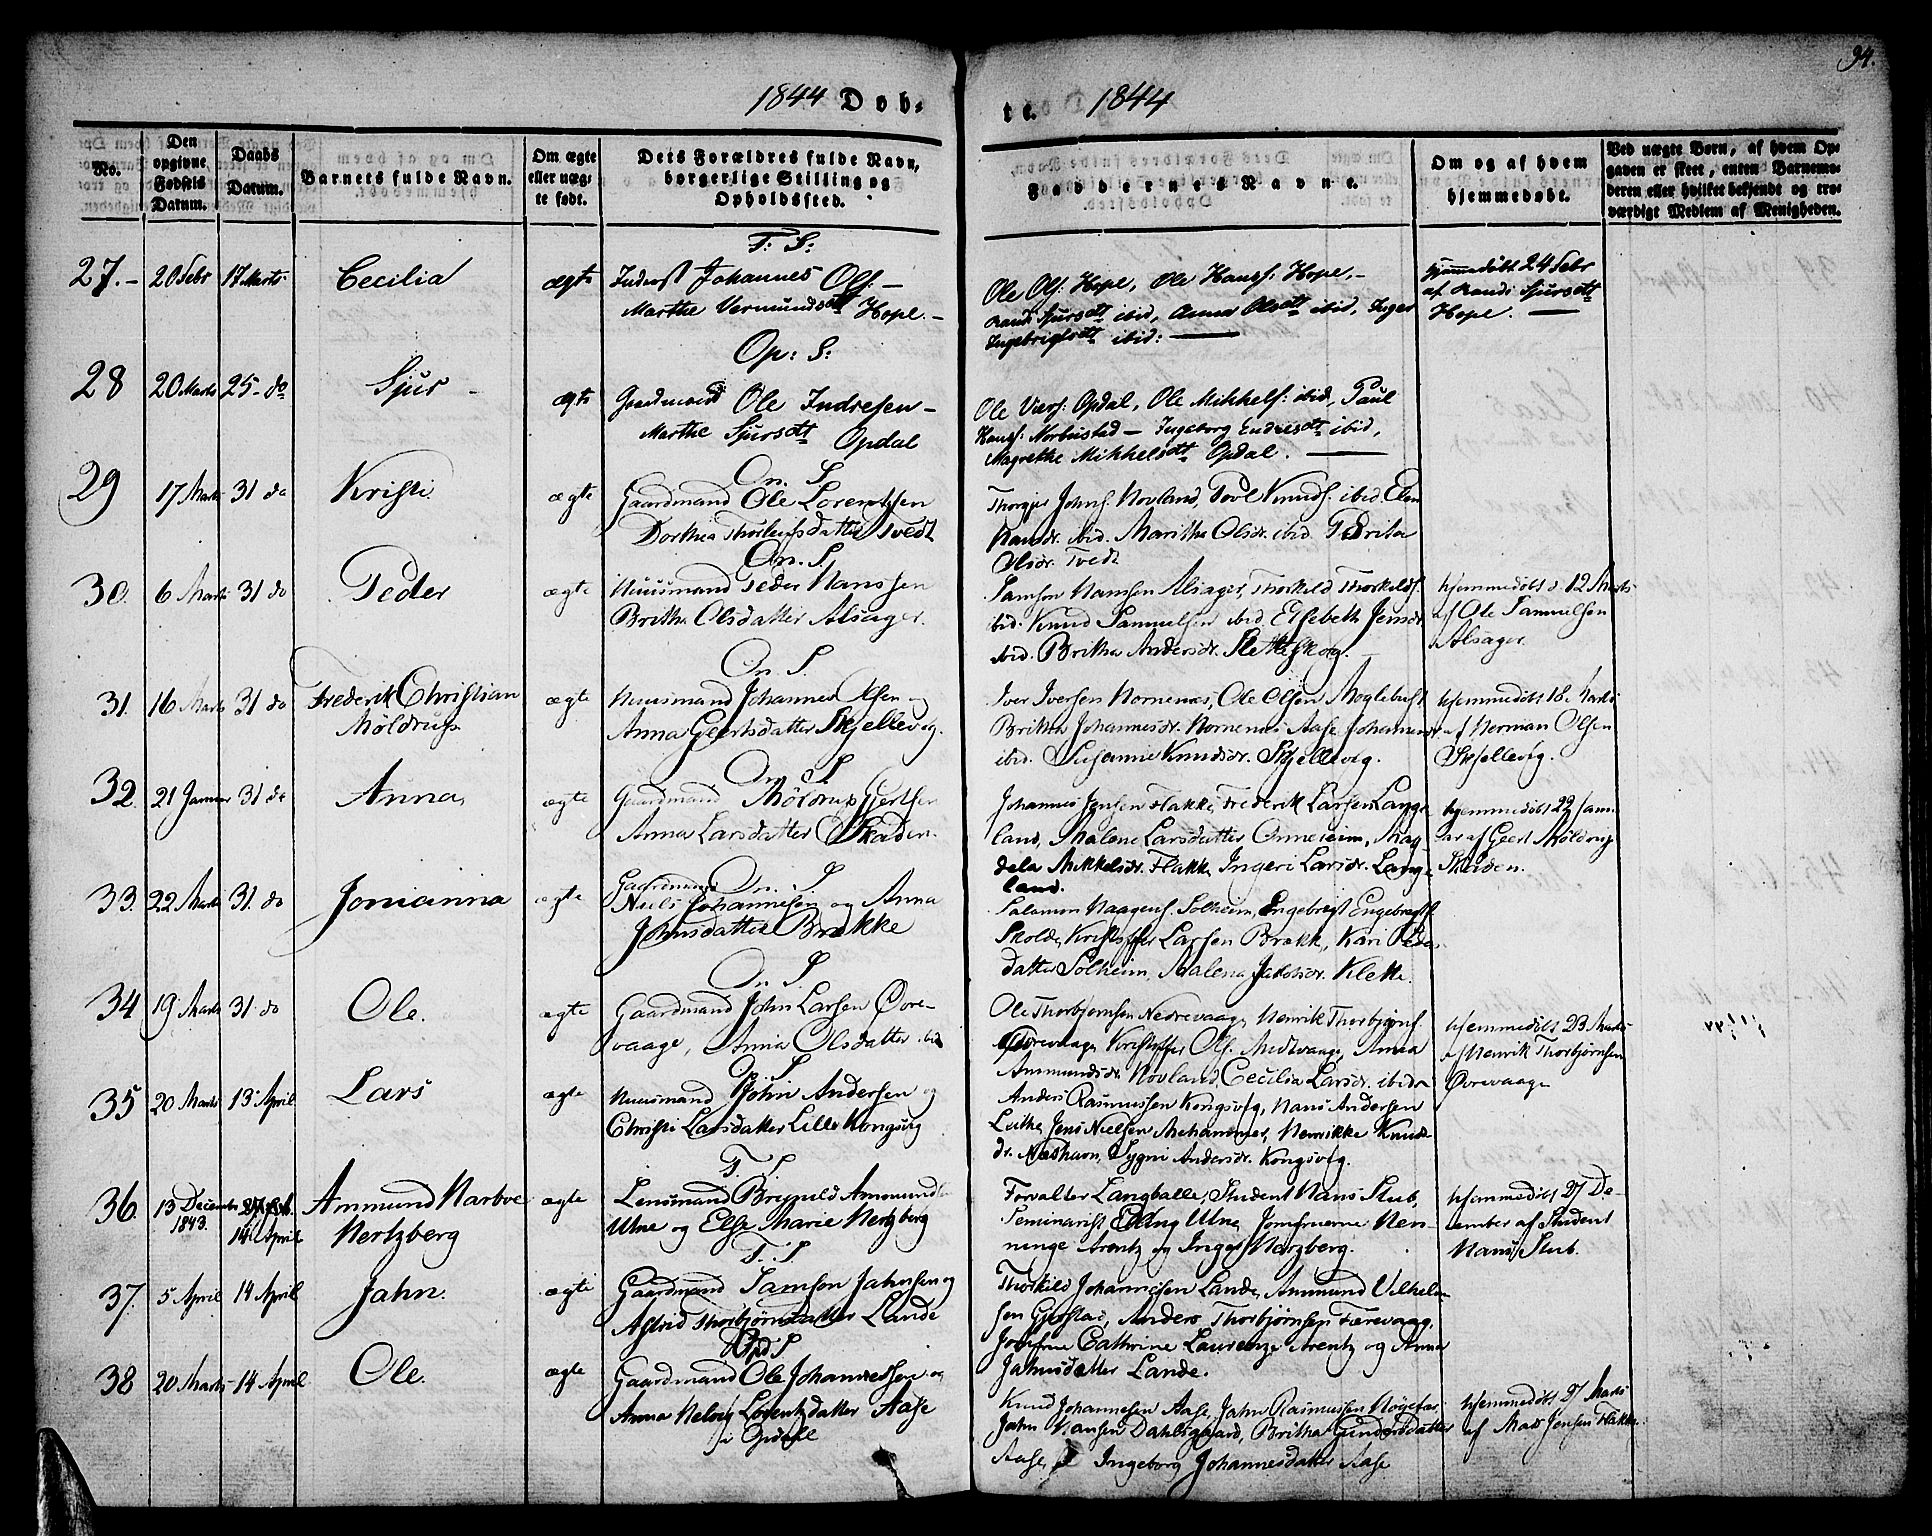 94.
1844 Døb-
te. 1844
No.
Den opgivne Fødsels Datum.
Daabs Datum.
Barnets fulde Navn.
Om ægte eller uægte født.
Dets Forældres fulde Navn, borgerlige Stilling og Opholdssted.
Faddernes Navne.
Om og af hvem hjemmedøbt.
Ved uægte Børn, af hvem Opgaven er skeet, enten Barnemoderen eller hvilket bekjendt og troværdigt Medlem af Menigheden.
T: S:
27.- 20 Febr 17 Marts Cecilia ægte Inderst Johannes Ols: -
Marthe Vermundsdtt Hope. -
Ole Ols: Hope, Ole Hans: Hope, -
Randi Sjursdtt ibid, Anna Olsdtt ibid, Inger
Ingebrigtsdtt ibid:
hjemmedøbt 24 Febr
af Randi Sjursdtt
Hope.
Op: S:
28 20 Marts 25 do Sjur ægte Gaardmand Ole Indresen -
Marthe Sjursdtt Opdal
Ole Vier: Opdal, Ole Mikkels: ibid, Paul
Hans: Norbustad - Ingeborg Endresdtt ibid,
Magrethe Mikkelsdtt Opdal.
On. S.
29 17 Marts 31 do Kristi ægte Gaardmand Ole Lorentsen
Dorthea Thorleifsdatter Tvedt
Thorgjer Johns. Hovland, Povl Knuds. ibid. Elen
Hansdr. ibid. Maritha Olsdr. ibid. Brita
Olsdr. Tvedt
On. S.
30. 6 Marts 31 do Peder ægte Huusmand Peder Hanssen
Britha Olsdatter Alsager.
Samson Hansen Alsager, Thorkild Thorkelds.
ibid. Knud Samuelsen ibid. Elsebeth Jensdr
ibid. Britha Andersdr. Sletteskog.
hjemmedøbt d. 12 Marts
af Ole Samuelsen
Alsager.
On. S.
31. 16 Marts 31 do Frederik Christian
Möldrup.
ægte Huusmand Johannes Olsen og
Anna Geertsdatter Skjellevig.
Iver Iversen Hornenæs, Ole Olsen Moglebust
Britha Johannesdr. Hornenæs Aase Johannesdr
ibid. Susanne Knudsdr. Skjellevig.
hjemmedøbt 18. Marts
af Herman Olsen
Skjellevig.
On. S
32. 21 Januar 31 do Anna ægte Gaardmand Möldrup Gertsen
Anna Larsdatter Skaden.
Johannes Jensen Flakke, Frederik Larsen Lange
land, Malene Larsdatter Onneeim, Mag
dela Mikkelsdr. Flakke, Ingeri Larsdr. Lange
land.
hjemmedøbt 22 Janu
ar af Geert Möldrup
Skaden.
On. S
33. 22 Marts 31. do Jonianna ægte Gaardmand
Niels Johannesen og Anna
Johnsdatter Brække
Salamon Haagens. Solheim, Engebregt Engebregts.
Skolde, Kristoffer Larsen Brækk, Kari Peders
datter Solheim, Malena Jacobsdr. Klette.
On. S
34 19 Marts 31. do Ole. ægte Gaardmand John Larsen Øvre-
vaage, Anna Olsdatter ibid
Ole Thorbjørnsen Nedrevaage, Henrik Thorbjørns.
Øvrevaage, Kristoffer Ols. Midtvaage, Anna
Ammundsdr. Hovland, Cecilia Larsdr. ibid
hjemmedøbt 23. Marts
af Henrik Thorbjørnsen
Øvrevaage
O. S
35 20 Marts 13 April Lars ægte Huusmand John Andersen og
Christi Larsdatter Lille Kongsvig
Anders Rasmussen Kongsvig, Hans Andersen
Luthe, Jens Nielsen Mehammer, Henrikke Knuds
dr. Næshavn, Sygni Andersdr. Kongsvig.
T. S
36. 13 December
1843. 14 April Ammund Narboe
Hertzberg
ægte Lensmand Brynild Ammundsen
Utne og Else Marie Hertzberg
Forvalter Langballe, Student Hans Stub,
Seminarist Elling Utne, Jomfruerne Hen-
ninge Arentz og Inger Herzberg.
hjemmedøbt 27 De-
cember af Student
Hans Stub.
T. S
37. 5 April 14 April Jahn. ægte Gaardmand Samson Jahnsen og
Astrid Thorbjørnsdatter Lande
Thorkild Johannesen Lande, Ammund Vilhelm
sen Gjerstad, Anders Thorbjørnsen Færevaag,
Jomfrue Cathrine Laurenze Arentz og Anna
Jahnsdatter Lande.
Opd: S
38 20 Marts 14 April Ole. ægte Gaardmand Ole Johannessen og
Anna Helvig Lorentzdatter Aase
i Opdahl
Knud Johannesen Aase, Jahn Rasmussen Nøgefar,
Jahn Hansen Dahlsgaard, Britha Gundersdatter
Aase, Ingeborg Johannesdatter Aase
hjemmedøbt 27 Marts
af Mads Jensen Flakke.